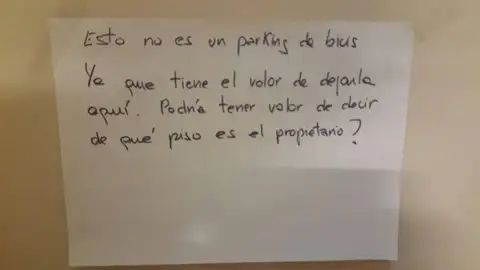 Esto no es un parking de bicis
Ya que tiene el valor de dejarla
aquí. Podría tener valor de decir
de qué piso es el propietario?